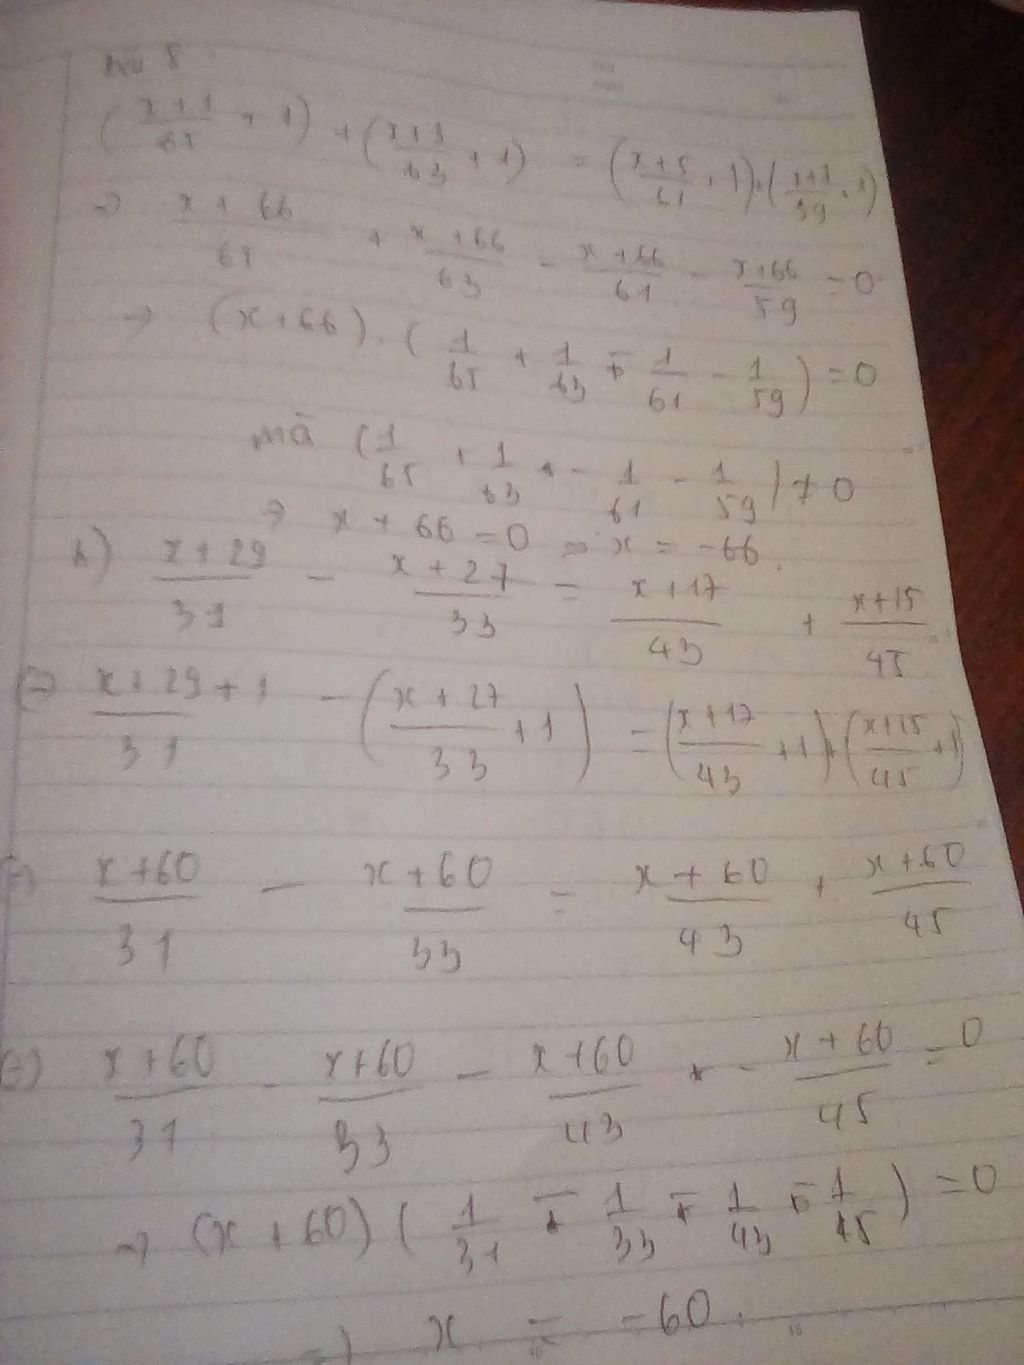 (x+1/65 + 1) + (x+3/63 + 1) = (x+5/61 + 1) + (x+7/59 + 1)
=> x+66/65 + x+66/63 - x+66/61 - x+66/59 = 0
=> (x+66).(1/65 + 1/63 - 1/61 - 1/59) = 0
mà (1/65 + 1/63 - 1/61 - 1/59) ≠ 0
=> x + 66 = 0 => x = -66.
b) x+29/31 - x+27/33 = x+17/43 + x+15/45
=> x+29+1/31 - (x+27/33 + 1) = (x+17/43 + 1) + (x+15/45 + 1)
=> x+60/31 - x+60/33 = x+60/43 + x+60/45
=> x+60/31 - x+60/33 - x+60/43 - x+60/45 = 0
=> (x+60)(1/31 - 1/33 - 1/43 - 1/45) = 0
=> x = -60.